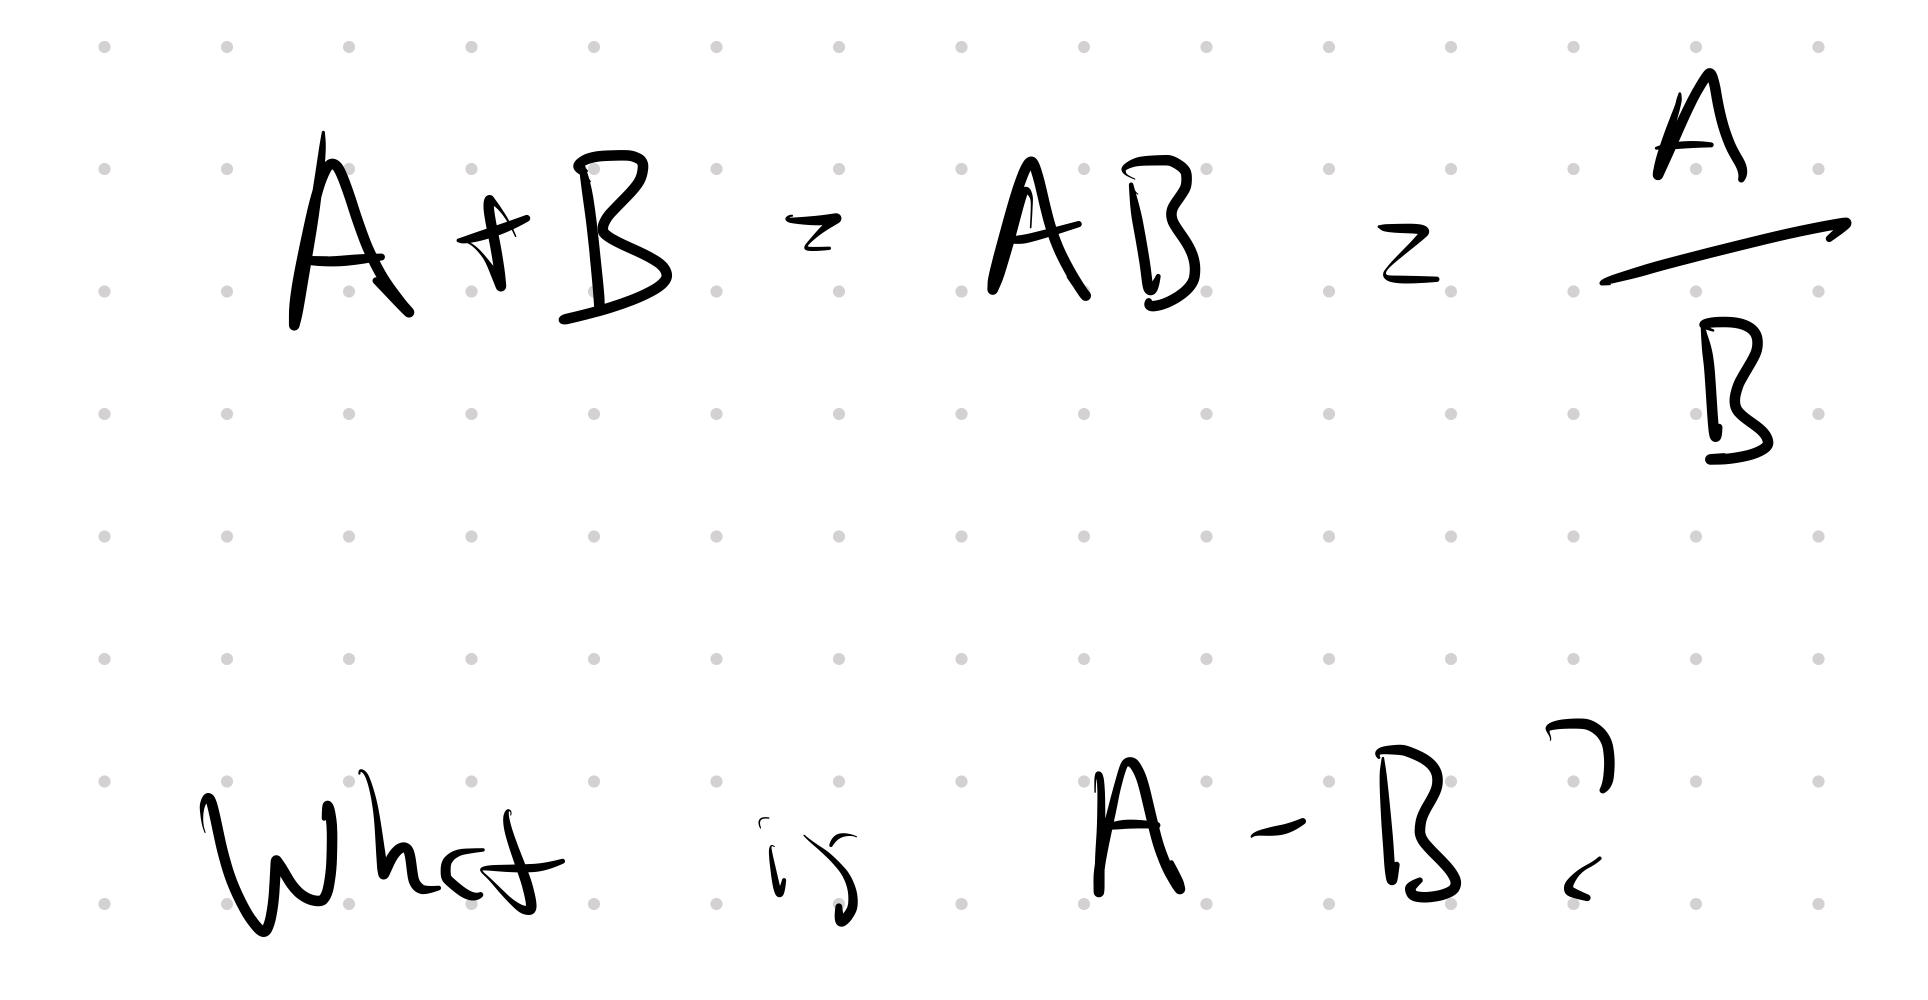 A + B = AB = A/B
What is A - B ?